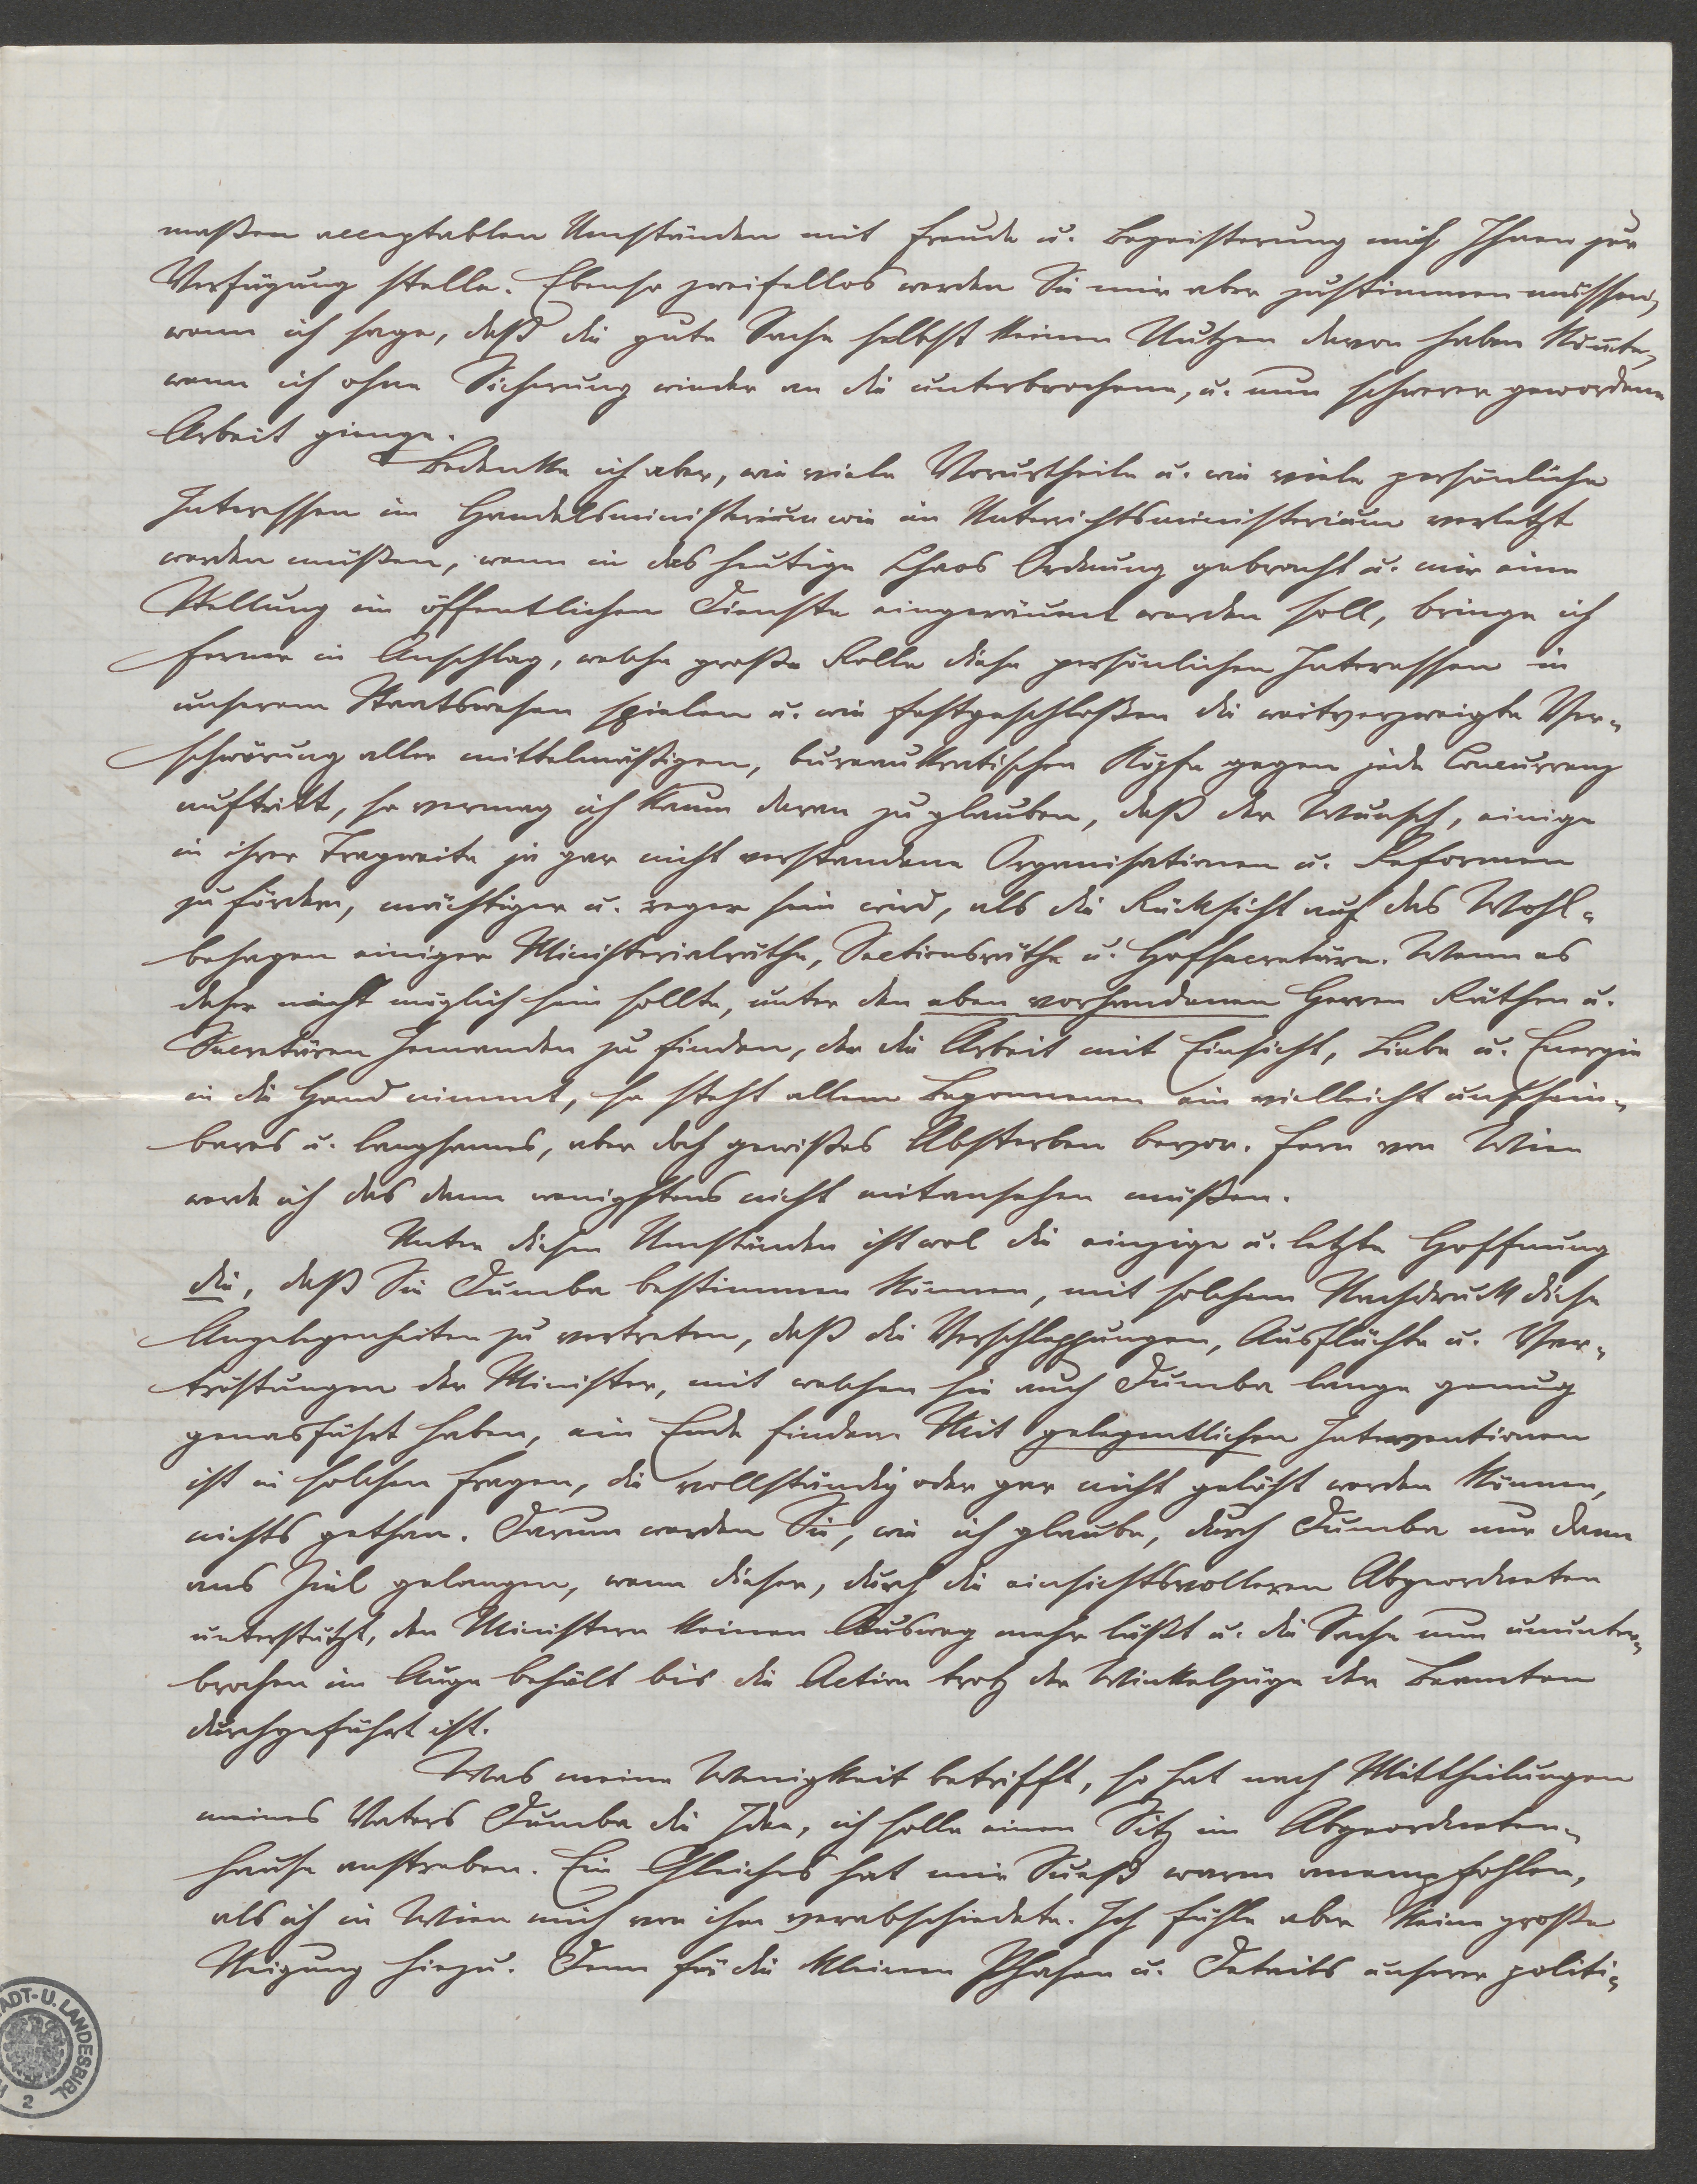 maßen acceptablen Umständen mit Freude u. Begeisterung mich Ihnen zur
Verfügung stelle. Ebenso zweifellos werden Sie mir aber zustimmen müssen,
wenn ich sage, daß die gute Sache selbst keinen Nutzen davon haben könnte,
wenn ich ohne Sicherung wieder an die unterbrochene, u. nun schwerer gewordene
Arbeit gienge.
Bedenke ich aber, wie viele Vorurtheile u. wie viele persönliche
Interessen im Handelsministerium wie im Unterrichtsministerium verletzt
werden müßen, wenn in das heutige Chaos Ordnung gebracht u. mir eine
Stellung im öffentlichen Dienste eingeräumt werden soll, bringe ich
ferner in Anschlag, welche große Rolle diese persönlichen Interessen in
unserem Staatswesen spielen u. wie festgeschloßen die weitverzweigte Ver-
schwörung aller mittelmäßigen, bureaukratischen Köpfe gegen jede Concurrenz
auftritt, so vermag ich kaum daran zu glauben, daß der Wunsch, einige
in ihrer Tragweite ja gar nicht verstandene Organisationen u. Reformen
zu fördern, mächtiger u. reger sein wird, als die Rücksicht auf das Wohl-
behagen einiger Ministerialräthe, Sectionsräthe u. Hofsecretäre. Wenn es
daher nicht möglich sein sollte, unter den eben vorhandenen Herren Räthen u.
Secretären Jemanden zu finden, der die Arbeit mit Einsicht, Liebe u. Energie
in die Hand nimmt, so steht allem Begonnenen ein vielleicht unschein-
bares u. langsames, aber doch gewißes Absterben bevor. Fern von Wien
werde ich das dann wenigstens nicht mitansehen müßen.
Unter diesen Umständen ist wol die einzige u. letzte Hoffnung
die, daß Sie Dumba bestimmen können, mit solchem Nachdruck diese
Angelegenheiten zu vertreten, daß die Verschleppungen, Ausflüchte u. Ver-
tröstungen der Minister, mit welchen sie auch Dumba lange genug
genasführt haben, ein Ende finden. Mit gelegentlichen Interventionen
ist in solchen Fragen, die vollständig oder gar nicht gelöst werden können,
nichts gethan. Darum werden Sie, wie ich glaube, durch Dumba nur dann
ans Ziel gelangen, wenn dieser, durch die einsichtsvolleren Abgeordneten
unterstützt, den Ministern keinen Ausweg mehr läßt u. die Sache nun ununter-
brochen im Auge behält bis die Action trotz der Winkelzüge der Beamten
durchgeführt ist.
Was meine Wenigkeit betrifft, so hat nach Mittheilungen
meines Vaters Dumba die Idee, ich solle einen Sitz im Abgeordneten-
hause anstreben. Ein Gleiches hat mir Sueß warm anempfohlen,
als ich in Wien mich von ihm verabschiedete. Ich fühle aber keine große
Neigung hiezu. Denn für die kleinen Phasen u. Details unserer politi-
ADT- U. LANDESBIBL
2